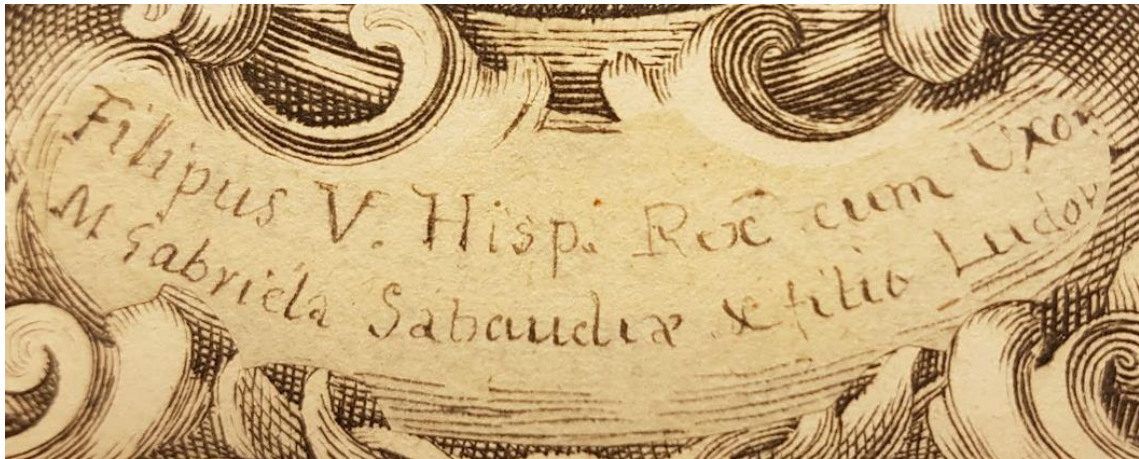 Filipus V. Hisp. Rex cum Uxor
M Gabriela Sabaudiæ & filio Ludov